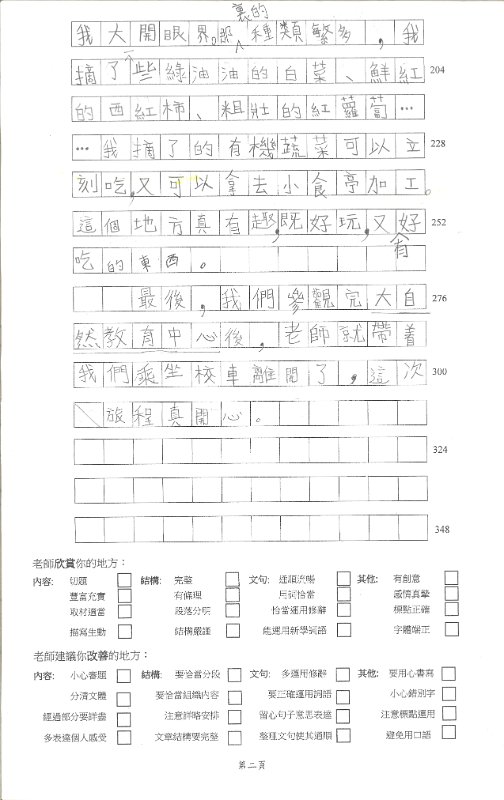 裏的
我大開眼界。那種類繁多，我
摘了些綠油油的白菜、鮮紅 204
的西紅柿、粗壯的紅蘿蔔…
…我摘了的有機蔬菜可以立 228
刻吃，又可以拿去小食亭加工。
這個地方真有趣，既好玩，又好 252
有
吃的東西。
最後，我們參觀完大自 276
然教育中心後，老師就帶着
我們乘坐校車離開了，這次 300
旅程真開心。
324
348
老師欣賞你的地方：
內容： 切題 結構： 完整 文句： 通順流暢 其他： 有創意
豐富充實 有條理 用詞恰當 感情真摯
取材適當 段落分明 恰當運用修辭 標點正確
描寫生動 結構嚴謹 能運用新學詞語 字體端正
老師建議你改善的地方：
內容： 小心審題 結構： 要恰當分段 文句： 多運用修辭 其他： 要用心書寫
分清文體 要恰當組織內容 要正確運用詞語 小心錯別字
經過部分要詳盡 注意詳略安排 留心句子意思表達 注意標點運用
多表達個人感受 文章結構要完整 整理文句使其通順 避免用口語
第二頁